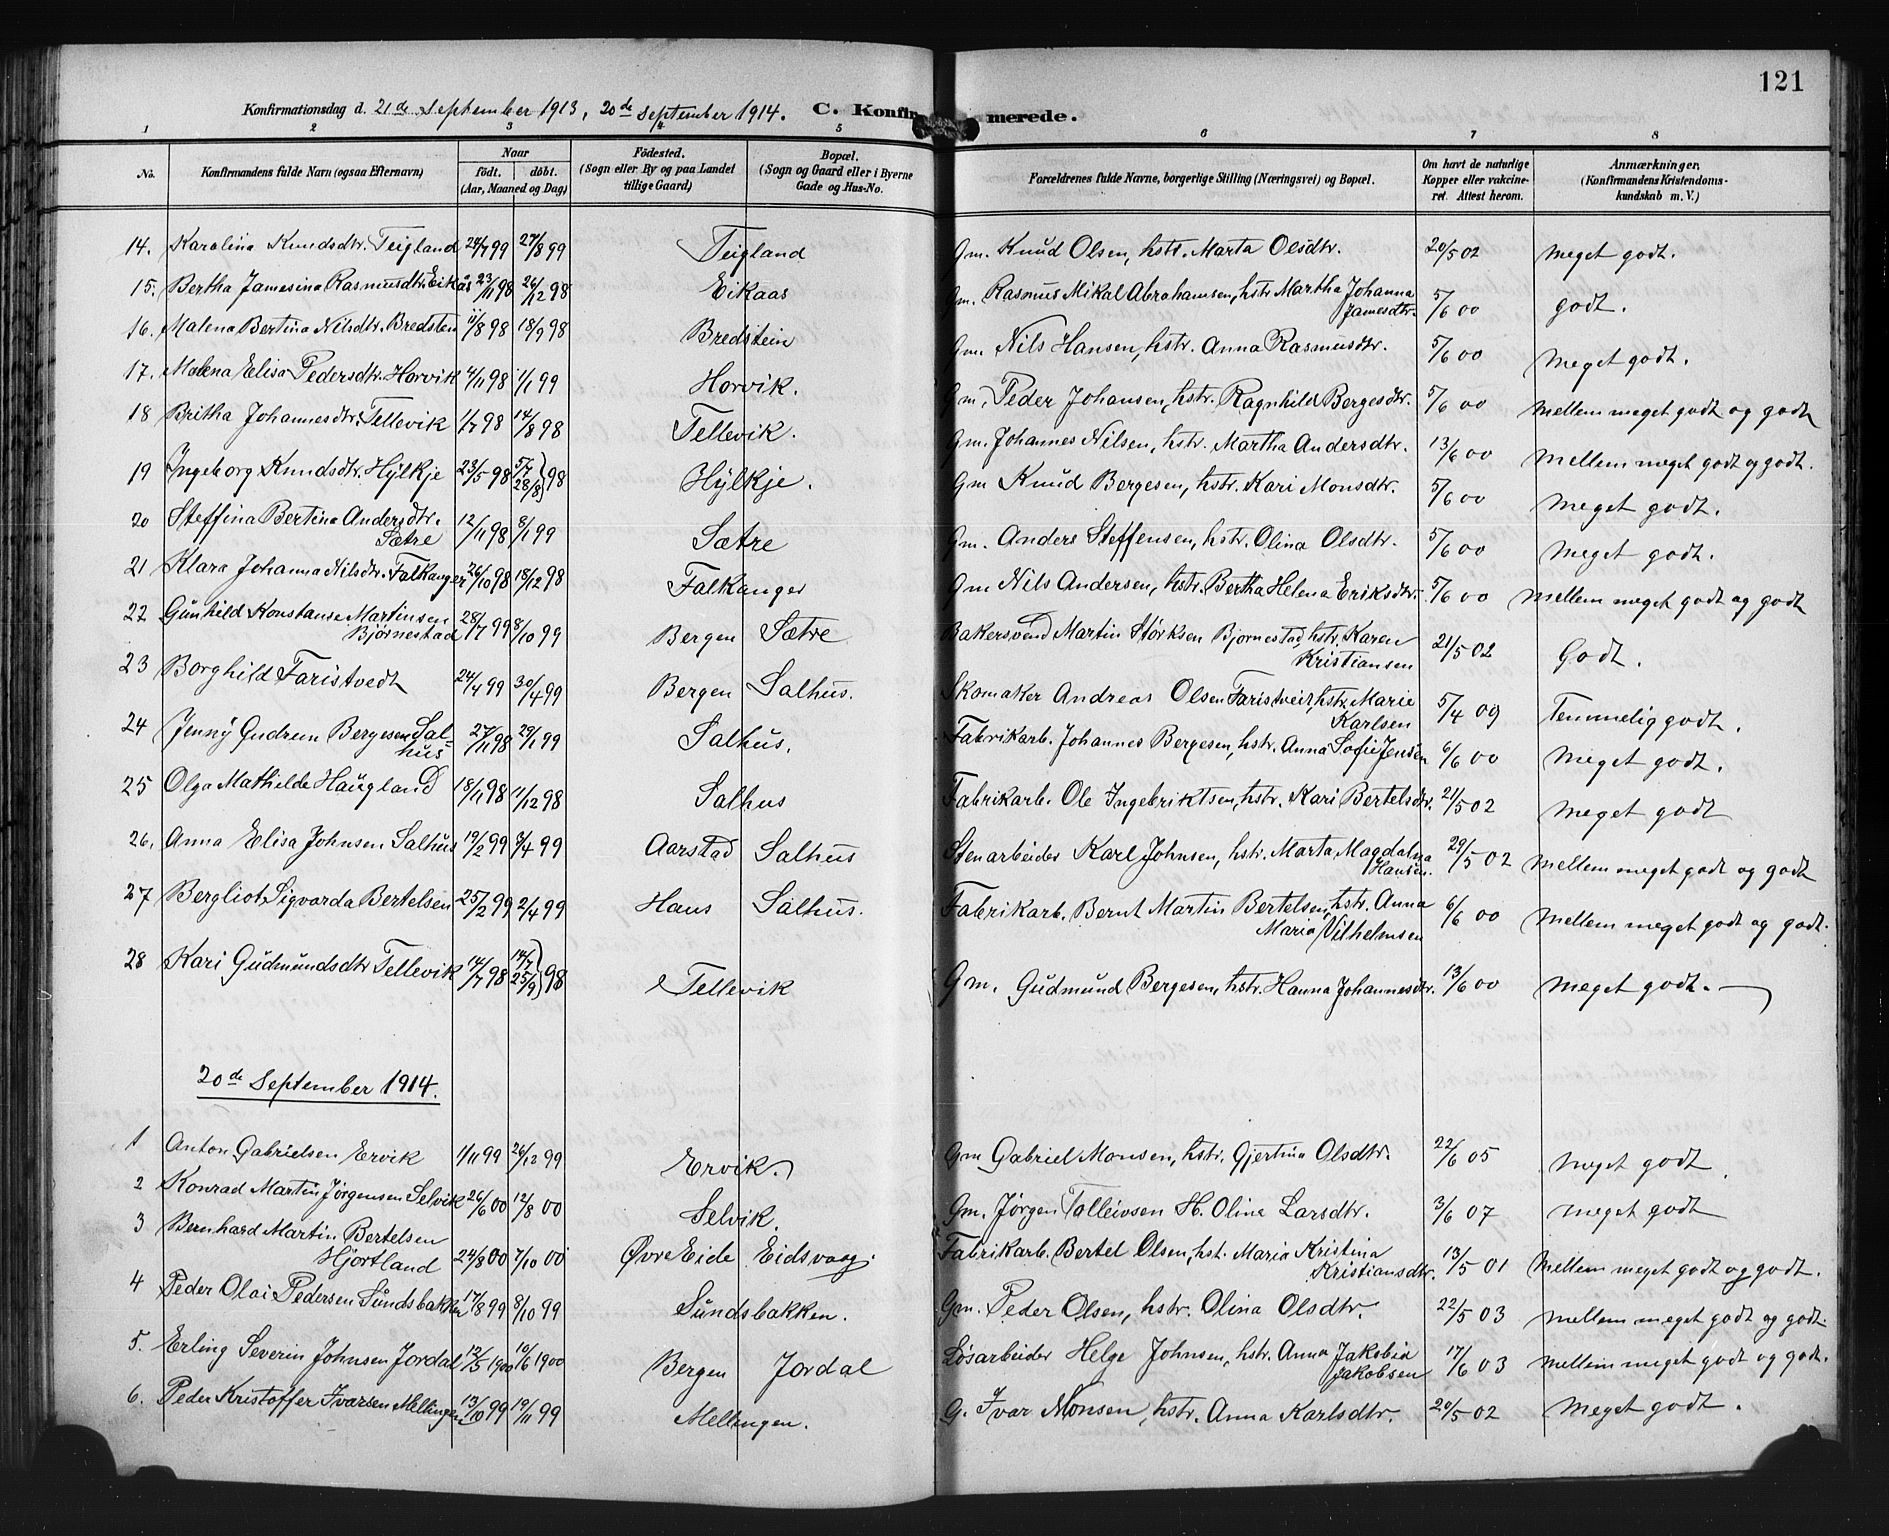 121
Konfirmationsdag d. 21de September 1913, 20de September 1914. C. Konfirmerede.
1 2 3 4 5 6 7 8
No. Konfirmandens fulde Navn (ogsaa Efternavn) Naar födt. döbt. (Aar, Maaned og Dag) Födested. (Sogn eller By og paa Landet tillige Gaard) Bopæl. (Sogn og Gaard eller i Byerne Gade og Hus-No. Forældrenes fulde Navne, borgerlige Stilling (Næringsvei) og Bopæl. Om havt de naturlige Kopper eller vakcineret. Attest herom. Anmærkninger. (Konfirmandens Kristendomskundskab m. V.)
14. Karolina Knudsdtr. Teigland 24/7 99 27/8 99 Teigland Gm. Knud Olsen, hstr. Marta Olsdtr. 20/5 02 Meget godt.
15. Bertha Jamesina Rasmusdtr. Eikaas 23/11 98 26/12 98 Eikaas Gm. Rasmus Mikal Abrahamsen, hstr Martha Johanna Jamesdtr. 5/6 00 godt.
16. Malena Bertina Nilsdtr. Bredsten 11/8 98 18/9 98 Bredstein Gm. Nils Hansen, hstr. Anna Rasmusdtr. 5/6 00 Meget godt.
17. Malena Elisa Pedersdtr. Horvik 4/11 98 1/1 99 Horvik. Gm, Peder Johansen, hstr. Ragnhild Bergesdtr. 5/6 00 Mellem meget godt og godt
18 Britha Johannesdtr. Tellevik 1/7 98 14/8 98 Tellevik. Gm. Johannes Nilsen, hstr. Martha Andersdtr. 13/6 00 Mellem meget godt og godt.
19 Ingeborg Knudsdtr. Hylkje 23/5 98 5/7 28/8 } 98 Hylkje. Gm Knud Bergesen, hstr. Kari Monsdtr. 5/6 00 Meget godt.
20 Steffina Bertina Andersdtr. Sætre 12/11 98 8/1 99 Sætre Gm. Anders Steffensen, hstr. Olina Olsdtr. 5/6 00 Meget godt.
21 Klara Johanna Nilsdtr. Falkanger 26/10 98 18/12 98 Falkanger Gm Nils Andersen, hstr. Bertha Helena Eriksdtr. 5/6 00 Mellem meget godt og godt
22 Gunhild Konstanse Martinsen Bjørnestad 28/7 99 8/10 99 Bergen Sætre Bakersvend Martin Størksen Bjørnestad, hstr. Karen Kristiansen 21/5 02 Godt.
23 Borghild Faristvedt 24/4 99 30/4 99 Bergen Salhus. Skomaker Andreas Olsen Faristveit, hstr. Marie Karlsen 5/4 09 Temmelig godt.
24 Jenny Gudrun Bergesen Salhus 27/11 98 29/1 99 Salhus. Fabrikarb. Johannes Bergesen, hstr. Anna Sofie Jensen 6/6 00 Meget godt.
25 Olga Mathilde Haugland 18/11 98 11/12 98 Salhus Fabrikarb. Ole Ingebriktsen, hstr. Kari Bertelsdtr. 21/5 02 Meget godt
26. Anna Elisa Johnsen Salhus 19/2 99 3/4 99 Aarstad Salhus Stenarbeider Karl Johnsen, hstr. Marta Magdalna Hansen. 29/5 02 Mellem meget godt og godt
27 Bergliot Sigvarda Bertelsen 25/2 99 2/4 99 Haus Salhus. Fabrikarb. Bernt Martin Bertelsen, hstr. Anna Maria Vilhelmsen 6/6 00 Mellem meget godt og godt.
28 Kari Gudmundsdtr Tellevik 14/7 98 14/7 25/9 } 98 Tellevik Gm. Gudmund Bergesen, hstr. Hanna Johannesdtr. 13/6 00 Meget godt.
20de September 1914.
1 Anton Gabrielsen Ervik 1/11 99 26/12 99 Ervik. Gm. Gabriel Monsen, hstr. Gjertina Olsdtr. 22/6 05 Meget godt
2 Konrad Martin Jørgensen Selvik 26/6 00 12/8 00 Selvik. Gm. Jørgen Talleivsen H. Oline Larsdtr. 3/6 07 Meget godt
3 Bernhard Martin Bertelsen Hjortland 24/8 00 7/10 00 Øvre Eide Eidsvaag. Fabrikarb. Bertel Olsen, hst. Maria Kristina Kristiansdtr. 13/5 01 Mellem meget godt og godt.
4 Peder Olai Pedersen Sundsbakken 17/8 99 8/10 99 Sundsbakken. Gm. Peder Olsen, hstr. Olina Olsdtr. 22/5 03 Mellem meget godt og godt.
5. Erling Severin Johnsen Jordal 12/5 1900 10/6 1900 Bergen Jordal Løsarbeider Helge Johnsen, hstr. Anna Jakobia Jakobsen 17/6 03 Mellem meget godt og godt.
6. Peder Kristoffer Ivarsen Mellingen 13/10 99 19/11 99 Mellingen. G. Ivar Monsen, hstr. Anna Karlsdtr. 20/5 02 Meget godt.